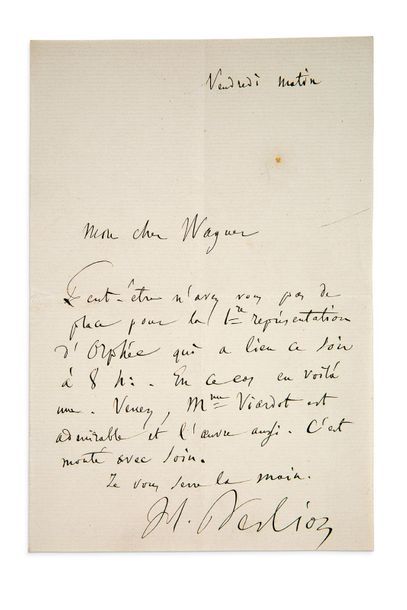 Vendredi matin
Mon cher Wagner
Peut-être n'avez vous pas de
place pour la 1re représentation
d'Orphée qui a lieu ce soir
à 8 h. En ce cas en voilà
une. Venez, Mme Viardot est
admirable et l'œuvre aussi. C'est
monté avec soin.
Je vous serre la main.
H. Berlioz